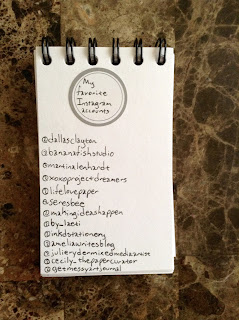 My
favorite
Instagram
accounts
@dallasclayton
@bananafishstudio
@martinalenhardt
@xoxoprojectdreamers
@lifelovepaper
@seresbee
@making.ideashappen
@by_laeti
@inkdstationery
@ameliawritesblog
@julierydermixedmediaartist
@cecily_thepapercurator
@getmessyartjournal